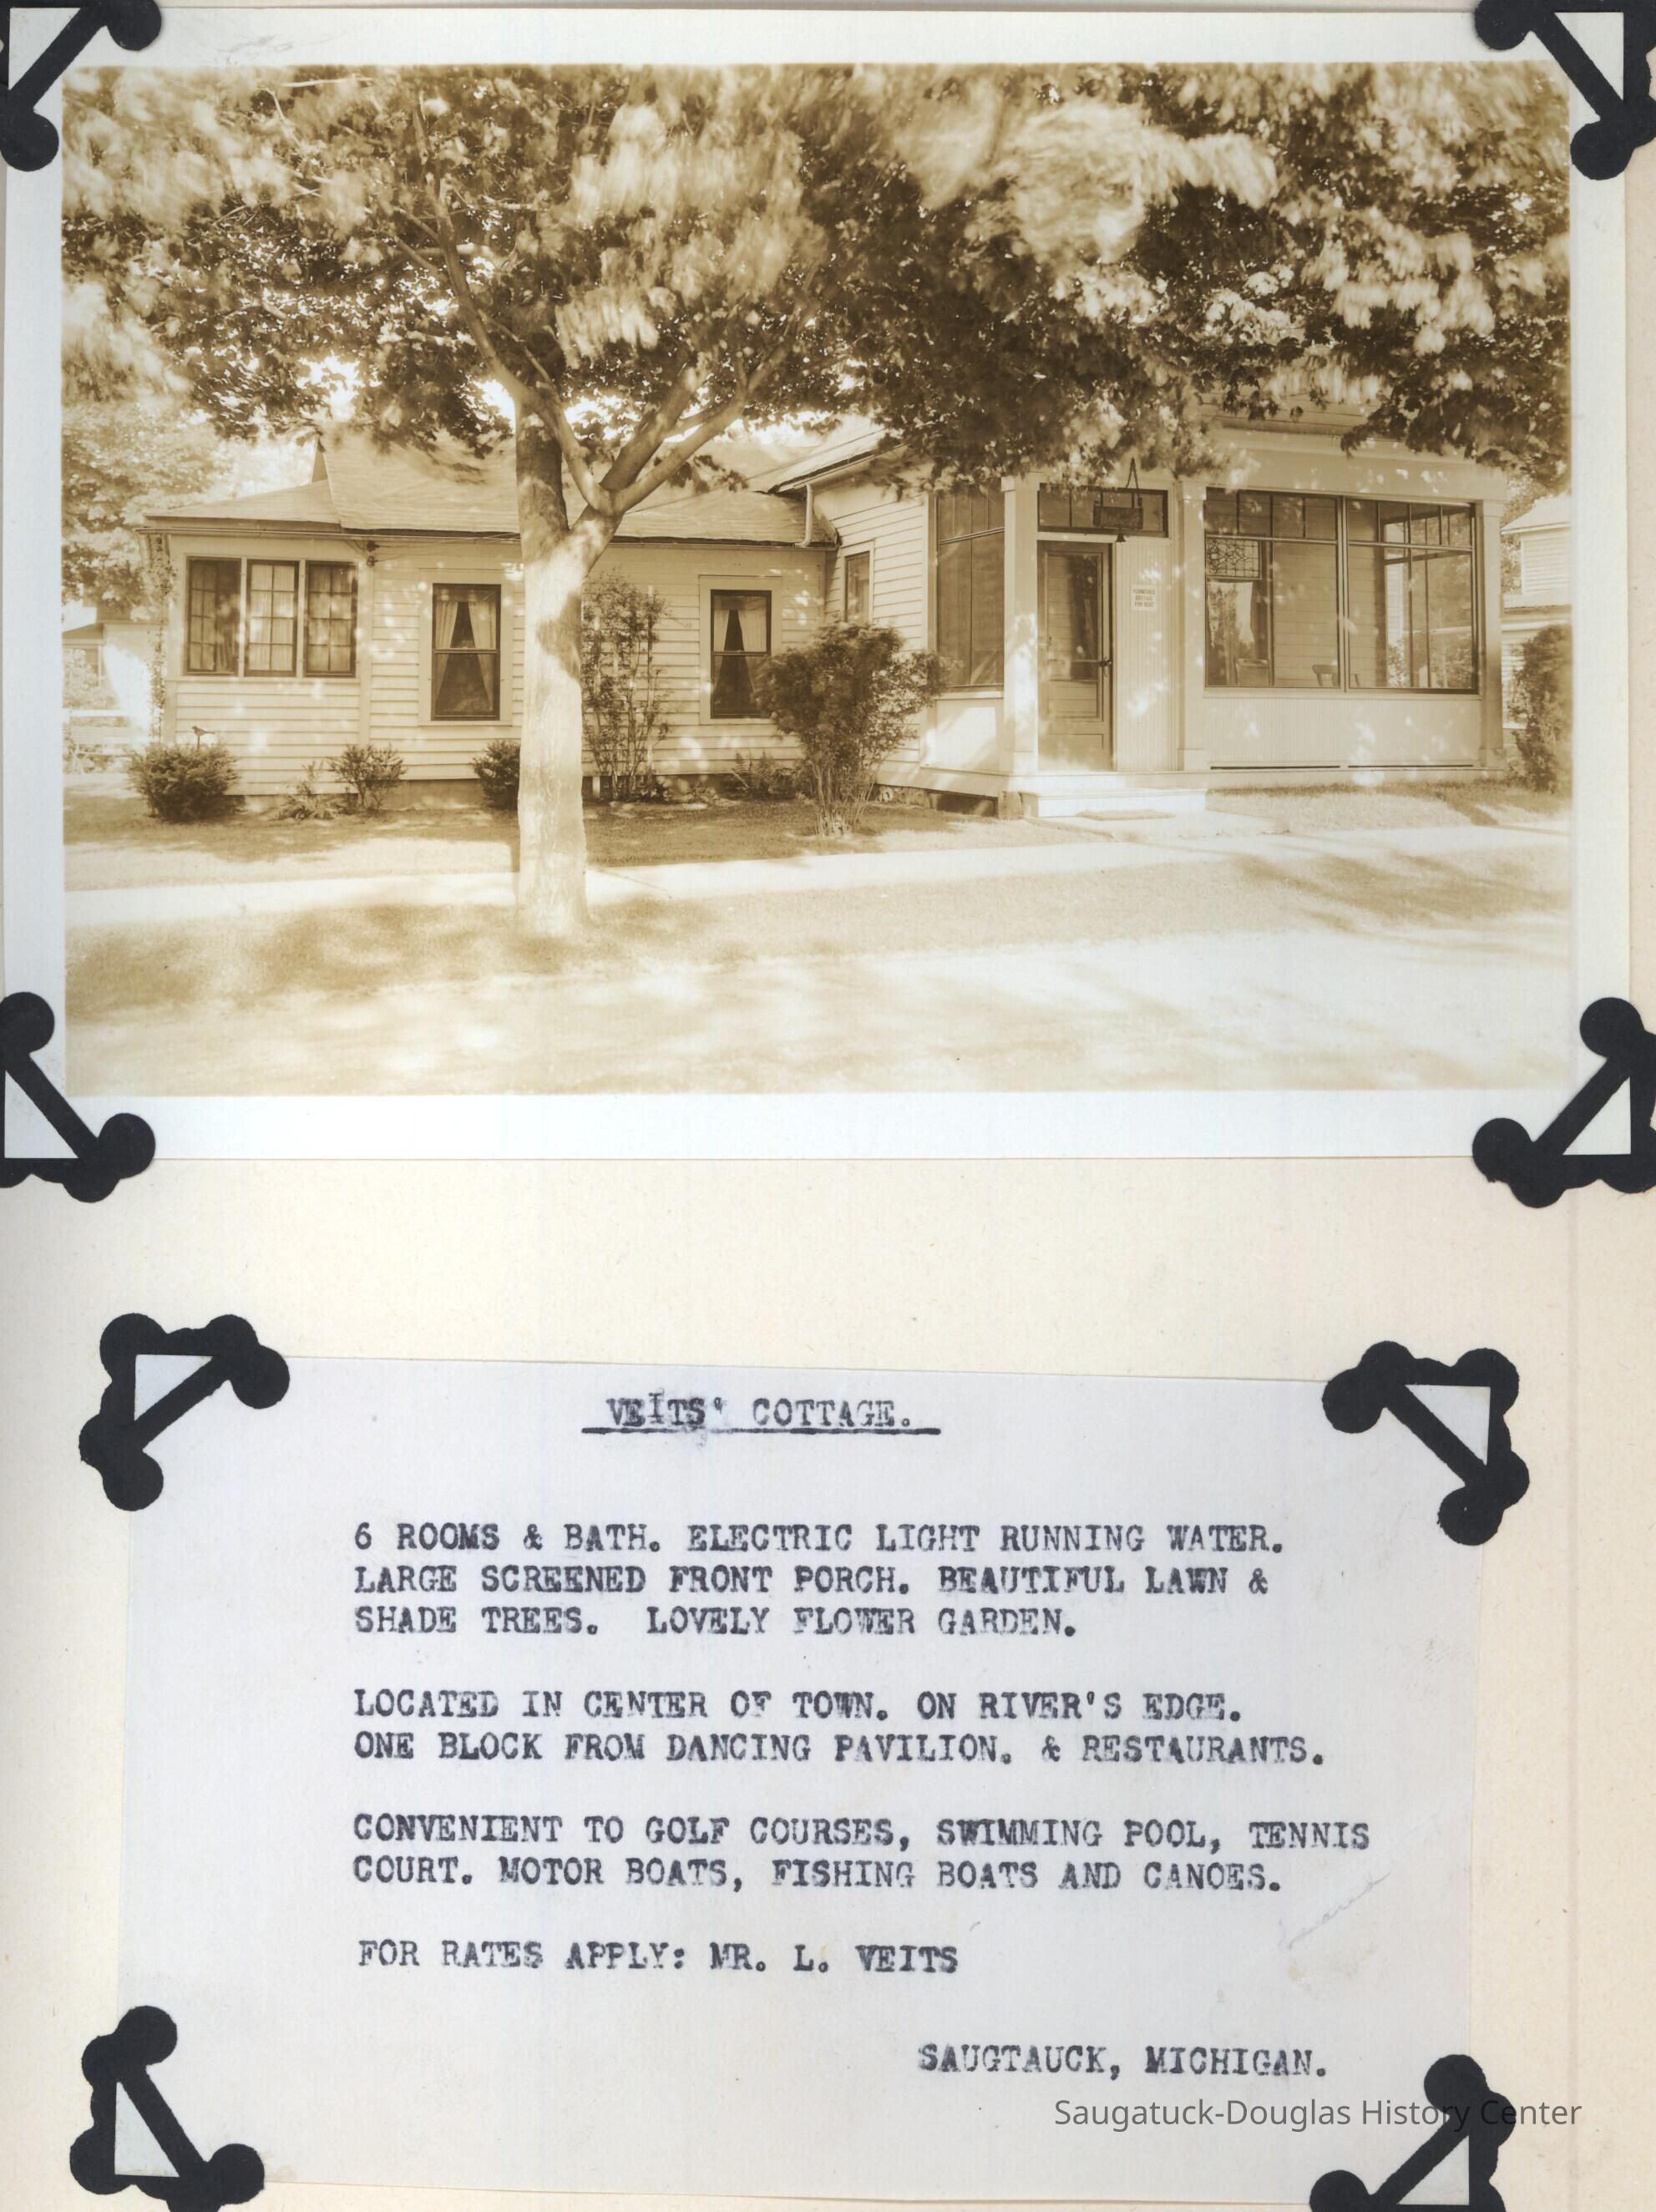 FURNISHED
COTTAGE
FOR RENT
VEITS' COTTAGE.
6 ROOMS & BATH. ELECTRIC LIGHT RUNNING WATER.
LARGE SCREENED FRONT PORCH. BEAUTIFUL LAWN &
SHADE TREES. LOVELY FLOWER GARDEN.
LOCATED IN CENTER OF TOWN. ON RIVER'S EDGE.
ONE BLOCK FROM DANCING PAVILION. & RESTAURANTS.
CONVENIENT TO GOLF COURSES, SWIMMING POOL, TENNIS
COURT. MOTOR BOATS, FISHING BOATS AND CANOES.
FOR RATES APPLY: MR. L. VEITS
SAUGTAUCK, MICHIGAN.
Saugatuck-Douglas History Center